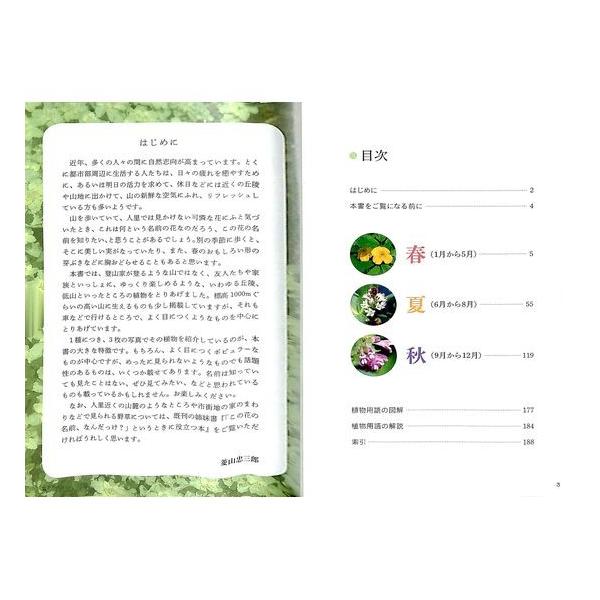 はじめに
近年、多くの人々の間に自然志向が高まっています。とく
に都市部周辺に生活する人たちは、日々の疲れを癒やすため
に、あるいは明日の活力を求めて、休日などには近くの丘陵
や山地に出かけて、山の新鮮な空気にふれ、リフレッシュし
ている方も多いようです。
山を歩いていて、人里では見かけない可憐な花にふと気づ
いたとき、これは何という名前の花なのだろう、この花の名
前を知りたい、と思うことがあるでしょう。別の季節に歩くと、
そこに美しい実がなっていたり、また、春のおもしろい形の
芽ぶきなどに胸おどらせることもあると思います。
本書では、登山家が登るような山ではなく、友人たちや家
族といっしょに、ゆっくり楽しめるような、いわゆる丘陵、
低山といったところの植物をとりあげました。標高1000mぐ
らいの高い山に生えるものも少し掲載していますが、それも
車などで行けるところで、よく目につくようなものを中心に
とりあげています。
1種につき、3枚の写真でその植物を紹介しているのが、本
書の大きな特徴です。もちろん、よく目につくポピュラーな
ものが中心ですが、めったに見られないようなものでも話題
性のあるものは、いくつか載せてあります。名前は知ってい
ても見たことはない、ぜひ見てみたい、などと思われている
ものも載っているかもしれません。お楽しみください。
なお、人里近くの山麓のようなところや市街地の家のまわ
りなどで見られる野草については、既刊の姉妹書『「この花の
名前、なんだっけ?」というときに役立つ本』をご覧いただ
ければうれしく思います。
釜山忠三郎
目次
はじめに 2
本書をご覧になる前に 4
春 (1月から5月) 5
夏 (6月から8月) 55
秋 (9月から12月) 119
植物用語の図解 177
植物用語の解説 184
索引 188
3